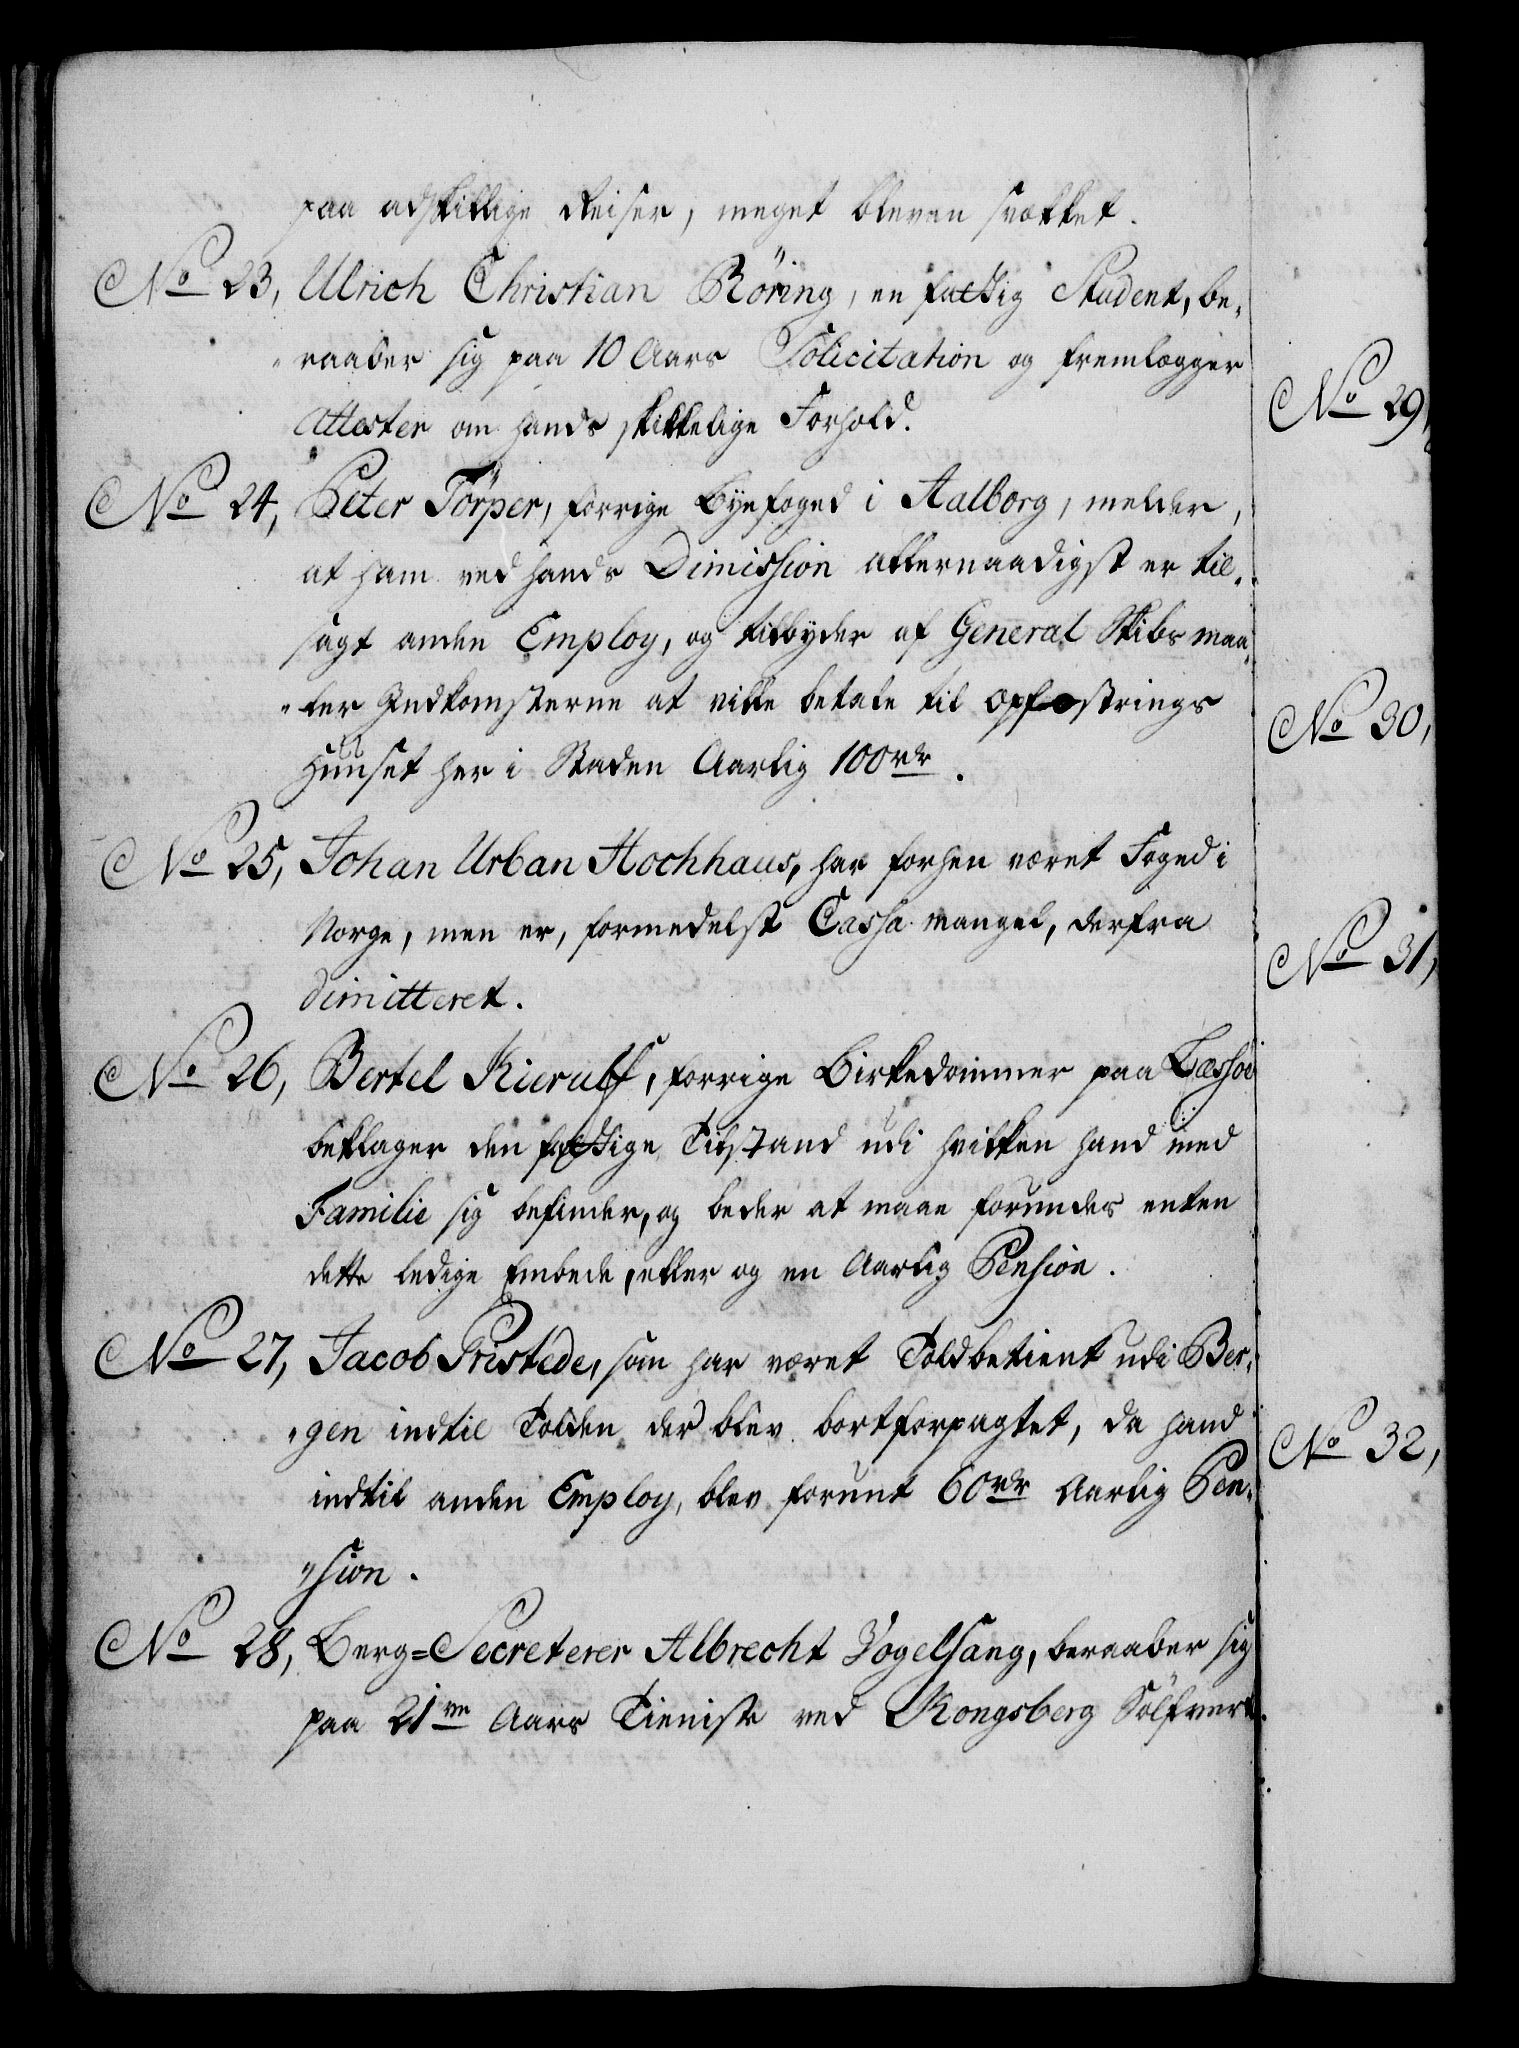 paa adskillige Reiser, meget bleven svækket.
No 23, Ulrich Christian Röring, en fattig Student, be„
„raaber sig paa 10 Aars Solicitation og fremlægger
Attester om hands skikkelige Forhold.
No 24, Peter Törper, forrige Byefoged i Aalborg, melder,
at ham ved hands Dimission allernaadigst er til„
sagt anden Employ, og tilbyder af General Skibs maa„
„ler Indkomsterne at ville betale til Opfostrings
Huuset her i Staden Aarlig 100 rdr.
No 25, Johan Urban Hochhaus, har forhen været Foged i
Norge, men er, formedelst Cassa mangel, derfra
dimitteret.
No 26, Bertel Kierulf, forrige Birkedommer paa Lessöe
beklager den fattige Tilstand udi hvilken hand med
Familie sig befinder, og beder at maae forundes enten
dette ledige Embede, eller og en Aarlig Pension.
No 27, Jacob Pristede, som har været Toldbetient udi Ber„
„gen indtil Tolden der blev bortforpagtet, da hand
indtil anden Employ, blev forunt 60 rdr Aarlig Pen„
„sion.
No 28, Berg=Secreterer Albrecht Vogelsang, beraaber sig
paa 21 ve Aars Tieniste ved Kongsberg Sölfverk.
No 29,
No 30,
No 31,
No 32,